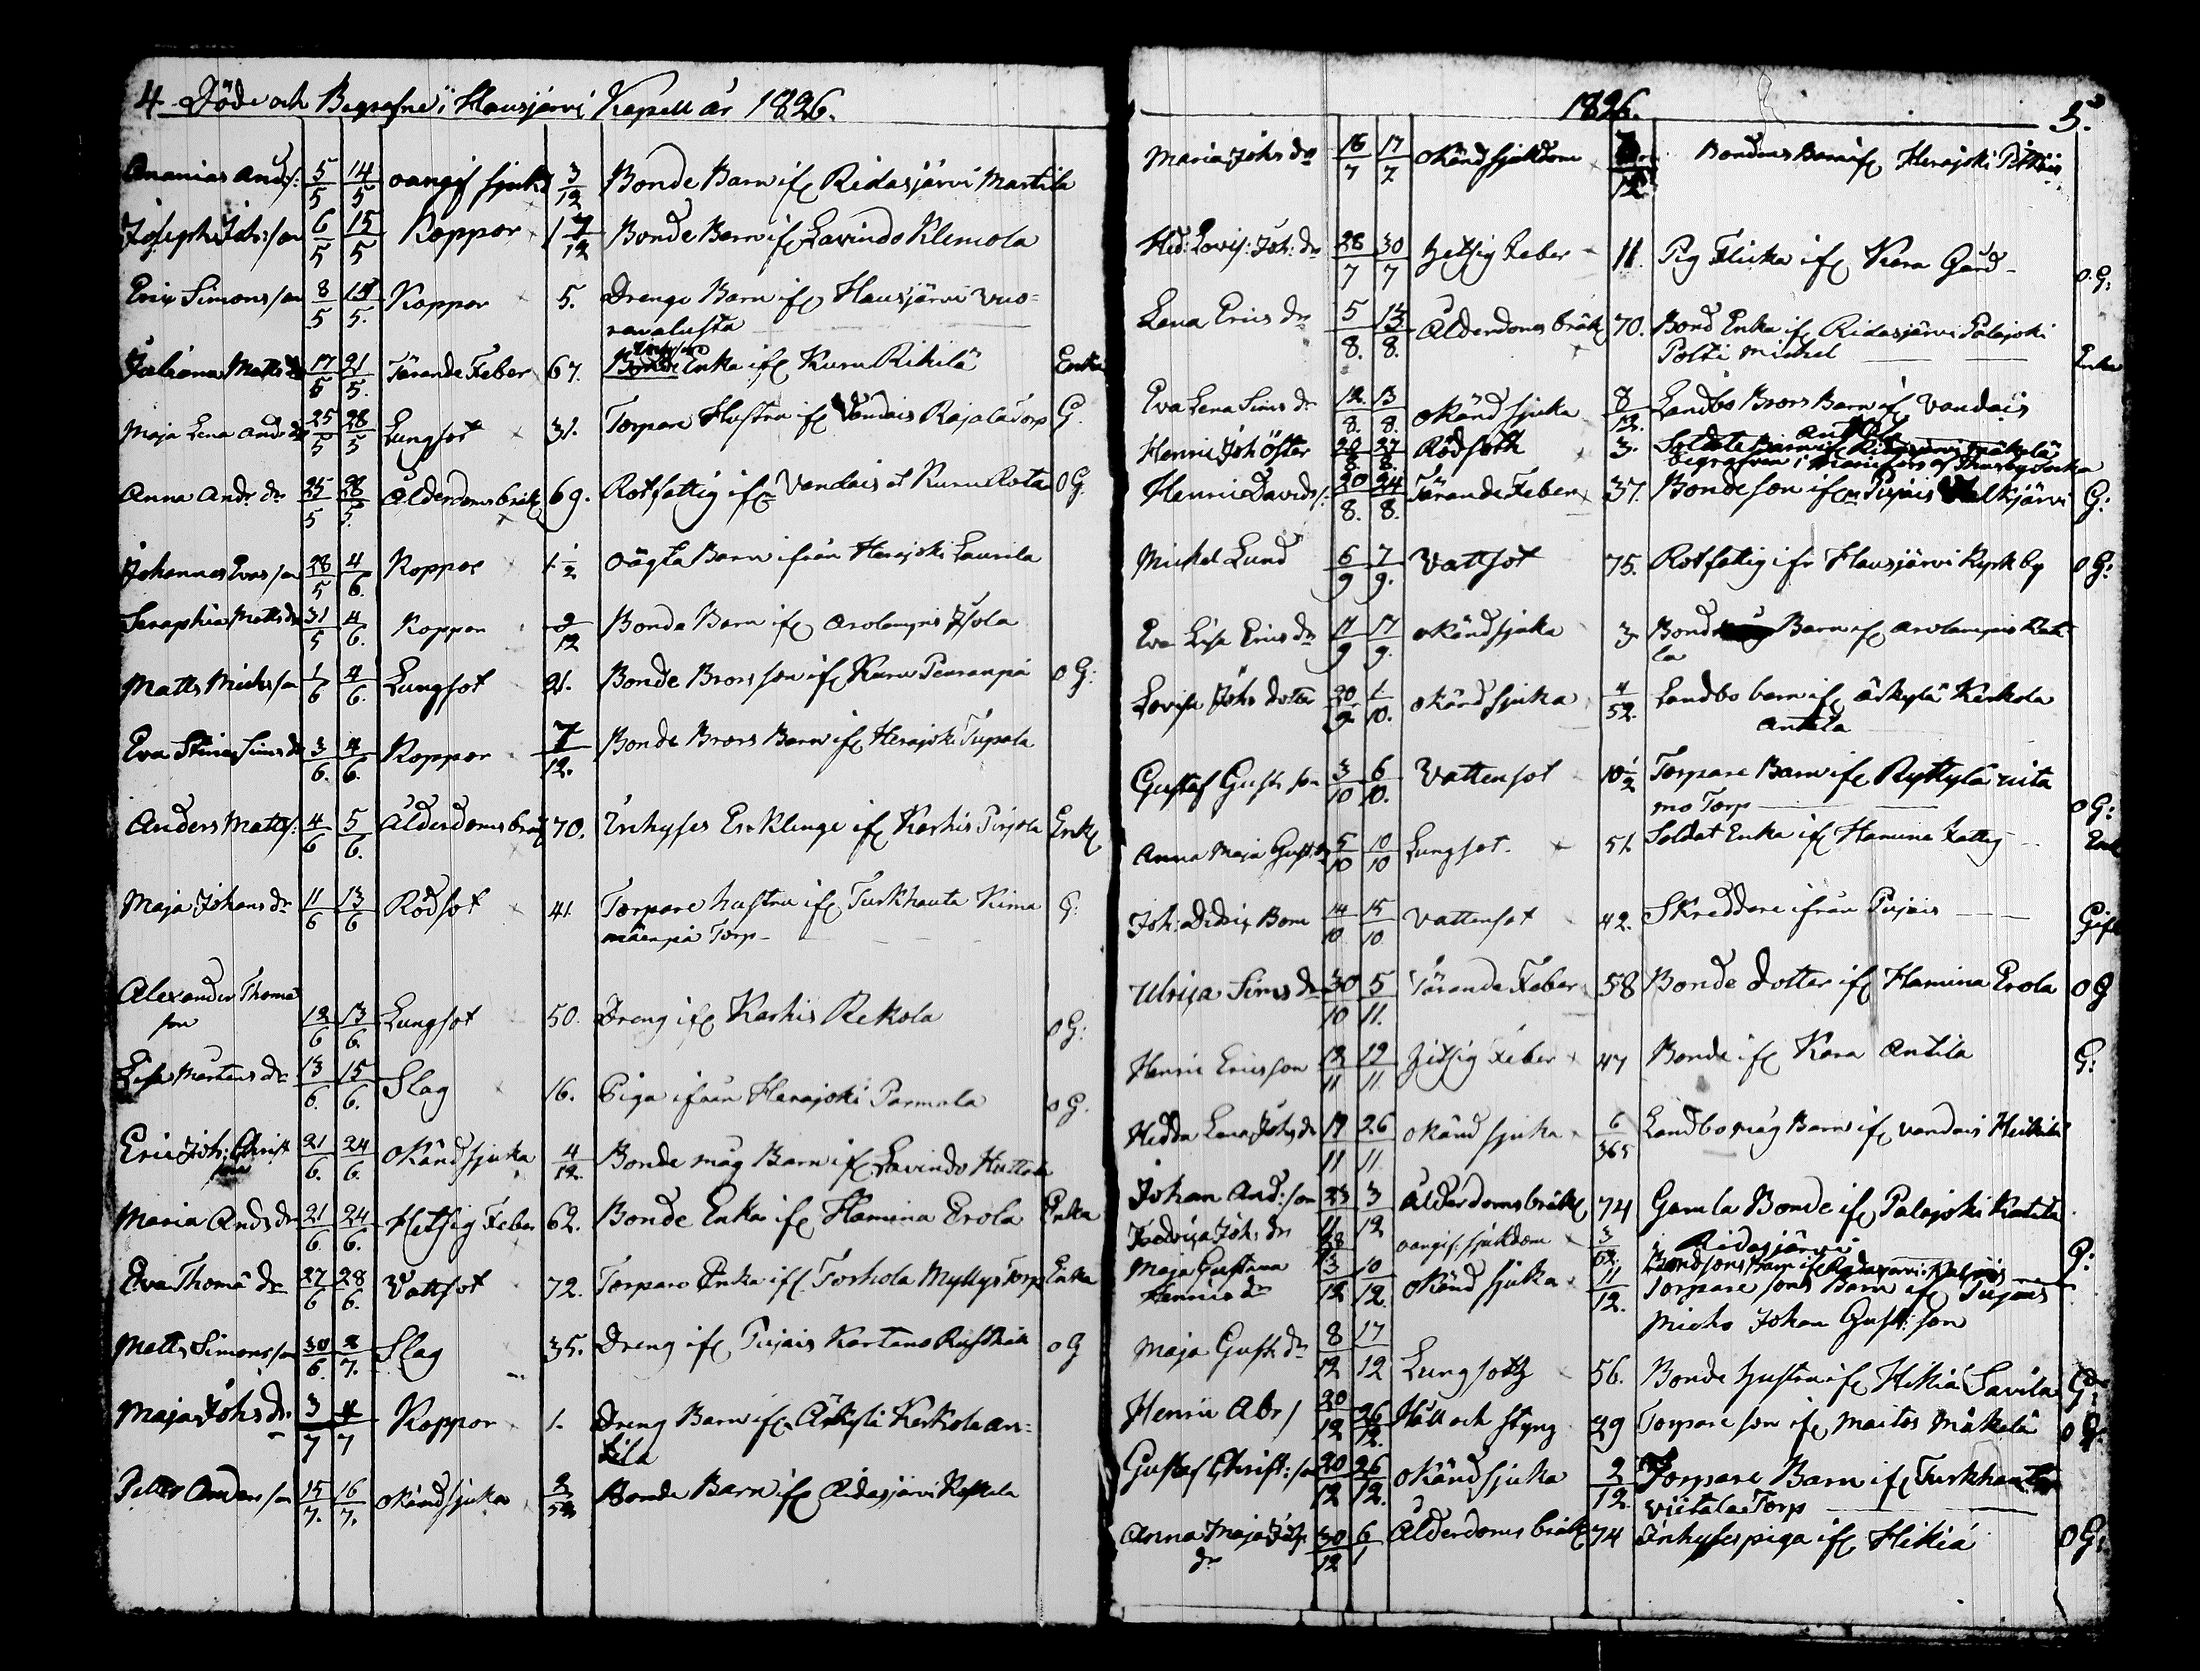 4 Döde och Begrafne i Hausjärvi Kapell år 1826.
Ananias And: s: 5/5 14/5 oangif sjukd 3/12 Bonde Barn ifr Ridasjärvi Martila
Joseph Joh: son 6/5 15/5 Koppor 1 7/12 Bonde Barn ifr Lavindo Klemola
Eric Simons son 8/5 Koppor 5. Drenge Barn ifr Hausjärvi Vuo=
renalusta
Juliana Matts dr 17/5 21/5. Tärande Feber 67. Enka ifr Kuru Rikilä Enka
Maja Lena And: dr 25/5 28/5 Lungsot 31. Torpare Hustru ifr Vandais Rajala Torp G.
Anna And: dr 25/5 28/5. Ålderdoms bräk 69. Rotfattig ifr Vandais et Kuru Rota O G.
Johannes Evas son 28/5 4/6. Koppor 1 1/2 oägta Barn ifrån Herajoki Laurila
Seraphia Matts dr 31/5 4/6. Koppor 9/12 Bonde Barn ifr Arolampis Isola
Matts Michs son 1/6 4/6. Lungsot 21. Bonde Brors son ifr Kuru Peuranpä O G:
Eva Stina Sims dr 3/6. 4/6. Koppor 7/12. Bonde Brors Barn ifr Herajoki Tupala
Anders Matts s: 4/6 5/6. Ålderdoms bräk 70. Inhyses Enklinge ifr Karhis Pirjola Enkl
Maja Johans dr 11/6 13/6 Rödsot 41. Torpare hustru ifr Turkhauta Kirma G:
mäenpä Torp
Alexander Thomæ
son 12/6 13/6. Lungsot 50. Dreng ifr Karhis Rekola O G:
Lisa Mårtens dr 13/6. 15/6. Slag 16. Piga ifrån Herajoki Parmala O G.
Eric Joh: Christ
21/6. 24/6. okänd sjuka 4/12. Bonde måg Barn ifr Lavindo Huttola
Maria And: dr 21/6. 24/6. Hetsig Feber 62. Bonde Enka ifr Hamina Erola Enka
Eva Thomæ dr 27/6 28/6. Vattsot 72. Torpare Enka ifr Torhola Myllys Torp Enka
Matts Simons son 30/6. 2/7. Slag 35. Dreng ifr Pujais Kartano Rusthåll O G
Maja Johs dr. 3/7 4/7 Koppor 1. Dreng Barn ifr Äikylä Kerkola An=
tila
Petter Anders son 15/7. 16/7. okänd sjuka 2/52 Bonde Barn ifr Ridasjärvi
1826. 5.
Maria Johs dr 16/7 17/7 okänd sjukdom Bondens Barn ifr Herajoki
Hed: Lovis: Joh: dr 28/7 30/7 hetsig Feber 11. Pig Flicka ifr Kara Gård O. G:
Lena Erics dr 5/8. 13/8. Ålderdoms bräk 70. Bond Enka ifr Ridasjärvi Palojoki
Polsi Michel Enka
Eva Lena Sims dr 12/8. 13/8. okänd sjuka 8/12. Landbo Brors Barn ifr Vandais
Antila
Henric Joh Öster 27/8. Rödsoth 3. Soldate Barn ifr Ridasjärvi Mäkelä
begrafven i
Henric Davids s: 20/8. 24/8. Tärande Feber 37. Bonde son ifr Pujais G:
Michel Lund 6/9 7/9. Vattsot 75. Rotfattig ifr Hausjärvi Kyrk by O G:
Eva Lisa Erics dr 11/9 17/9. okänd sjuka 3 Bonde Barn ifr Arolampis
la
Lovisa Johs dotter 20/9. 1/10. okänd sjuka 4/52. Landbo barn ifr Äikylä Kerkola
Antila
Gustaf Gusts son 3/10 6/10. Vattensot 10 1/2 Torpare Barn ifr Ryttylä
mo Torp O G:
Anna Maja Gust: dr 5/10 10/10 Lungsot. 51. Soldat Enka ifr Hamina Fattig Enk
Joh: Didric Bom 14/10 15/10 Vattensot 42. Skreddare ifrån Pujais Gift
Ulrica Sims dr 30/10 5/11. Tärande Feber 58 Bonde dotter ifr Hamina Erola O G
Henric Ericsson 12/11 19/11 hitsig Feber 47 Bonde ifr Kara Antila G:
Hedda Lena Johs dr 19/11 26/11 okänd sjuka 6/365 Landbo måg Barn ifr Vandais Heikkilä
Johan And: son 23/11 3/12 Ålderdoms bräk 74 Gamla Bonde ifr Palojoki Katila G:
Ridasjärvi
Fredrica Joh: dr oangif: sjukdom 3/52. Bondsons Barn ifr
Maja Gustava
Henrics dr 3/12 10/12. okänd sjuka 11/12. Torpare sons Barn ifr Pujais
Micho Johan Gust: son
Maja Gusts dr 8/12 17/12 Lungsoth 56. Bonde hustru ifr Hikiä Savila G:
Henric Abr s 20/12 26/12. Håll och styng 29 Torpare son ifr Maitos Mäkelä O G:
Gustaf Christ: son 20/12 26/12. okänd sjuka 2/12. Torpare Barn ifr Turkhauta
Viitala Torp
Anna Maja Joh
dr 30/12 6/1 Ålderdoms bräk 74 Inhyses piga ifr Hikiä O G: